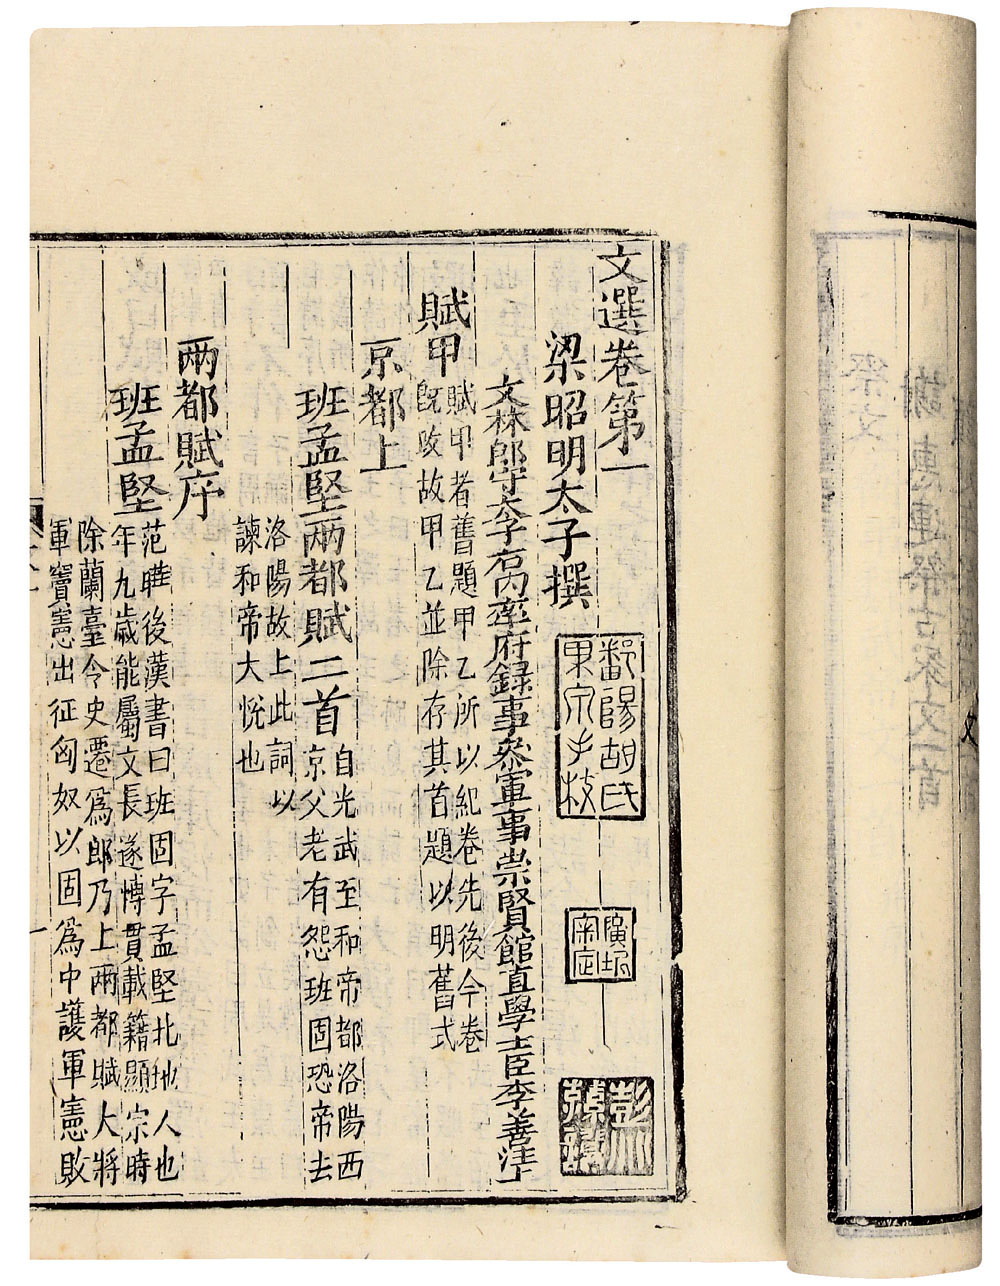 文選卷第一
梁昭明太子撰
文林郎守太子右內率府録事參軍事崇賢館直學士臣李善注上
賦甲
賦甲者舊題甲乙所以紀卷先後今卷
既改故甲乙並除存其首題以明舊式
京都上
班孟堅兩都賦二首
自光武至和帝都洛陽西
京父老有怨班固恐帝去
洛陽故上此詞以
諫和帝大悦也
兩都賦序
班孟堅
范曄後漢書曰班固字孟堅北地人也
年九歲能屬文長遂博貫載籍顯宗時
除蘭臺令史遷爲郎乃上兩都賦大將
軍竇憲出征匈奴以固爲中護軍憲敗
一
鄱陽胡氏
果泉手校
謝惠連祭古冢文一首
祭文
文